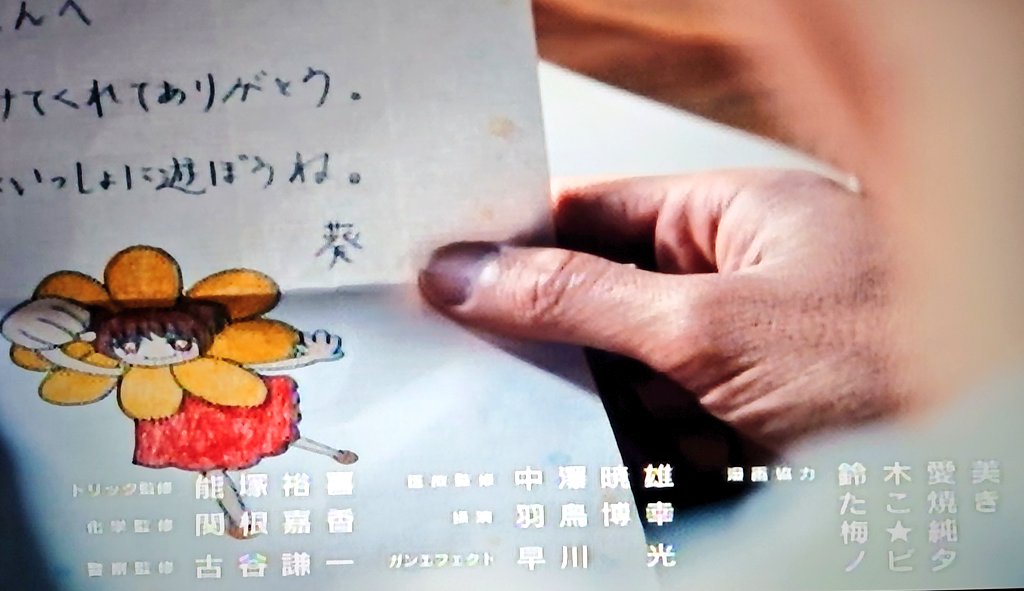 んへ
けてくれてありがとう。
いっしょに遊ぼうね。
葵
トリック監修 能塚裕喜
化学監修 関根嘉香
警察監修 古谷謙一
医療監修 中澤暁雄
操演 羽鳥博幸
ガンエフェクト 早川 光
漫画協力 鈴木愛美
たこ焼き
梅★純
ノビタ